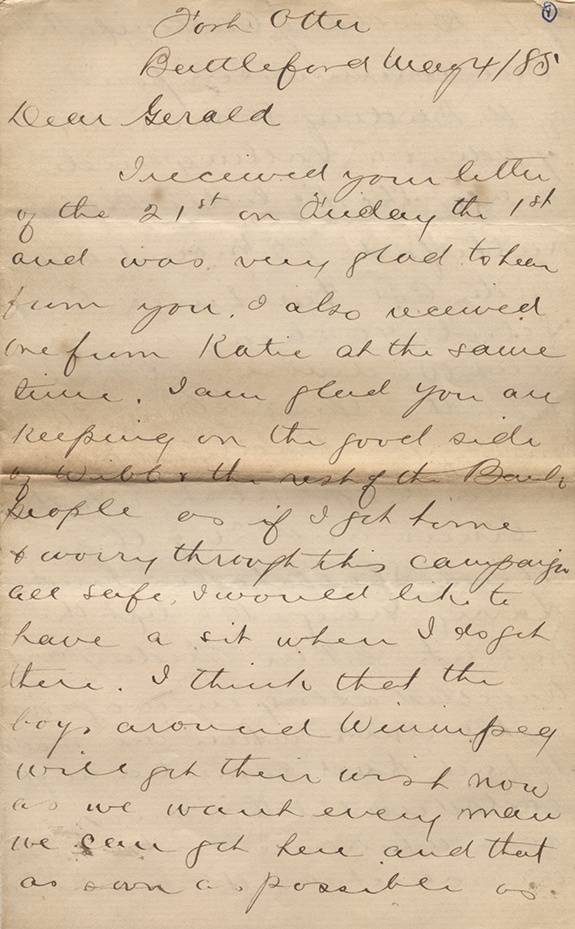 Fort Otter
Battleford May 4/85
Dear Gerald
I received your letter
of the 21st on Friday the 1st
and was very glad to hear
from you. I also received
one from Katie at the same
time. I am glad you are
keeping on the good side
of Webb & the rest of the Bank
people as if I get home
& worry through this campaign
all safe, I would like to
have a sit when I do get
there. I think that the
boys around Winnipeg
will get their wish now
as we want every man
we can get here and that
as soon as possible as